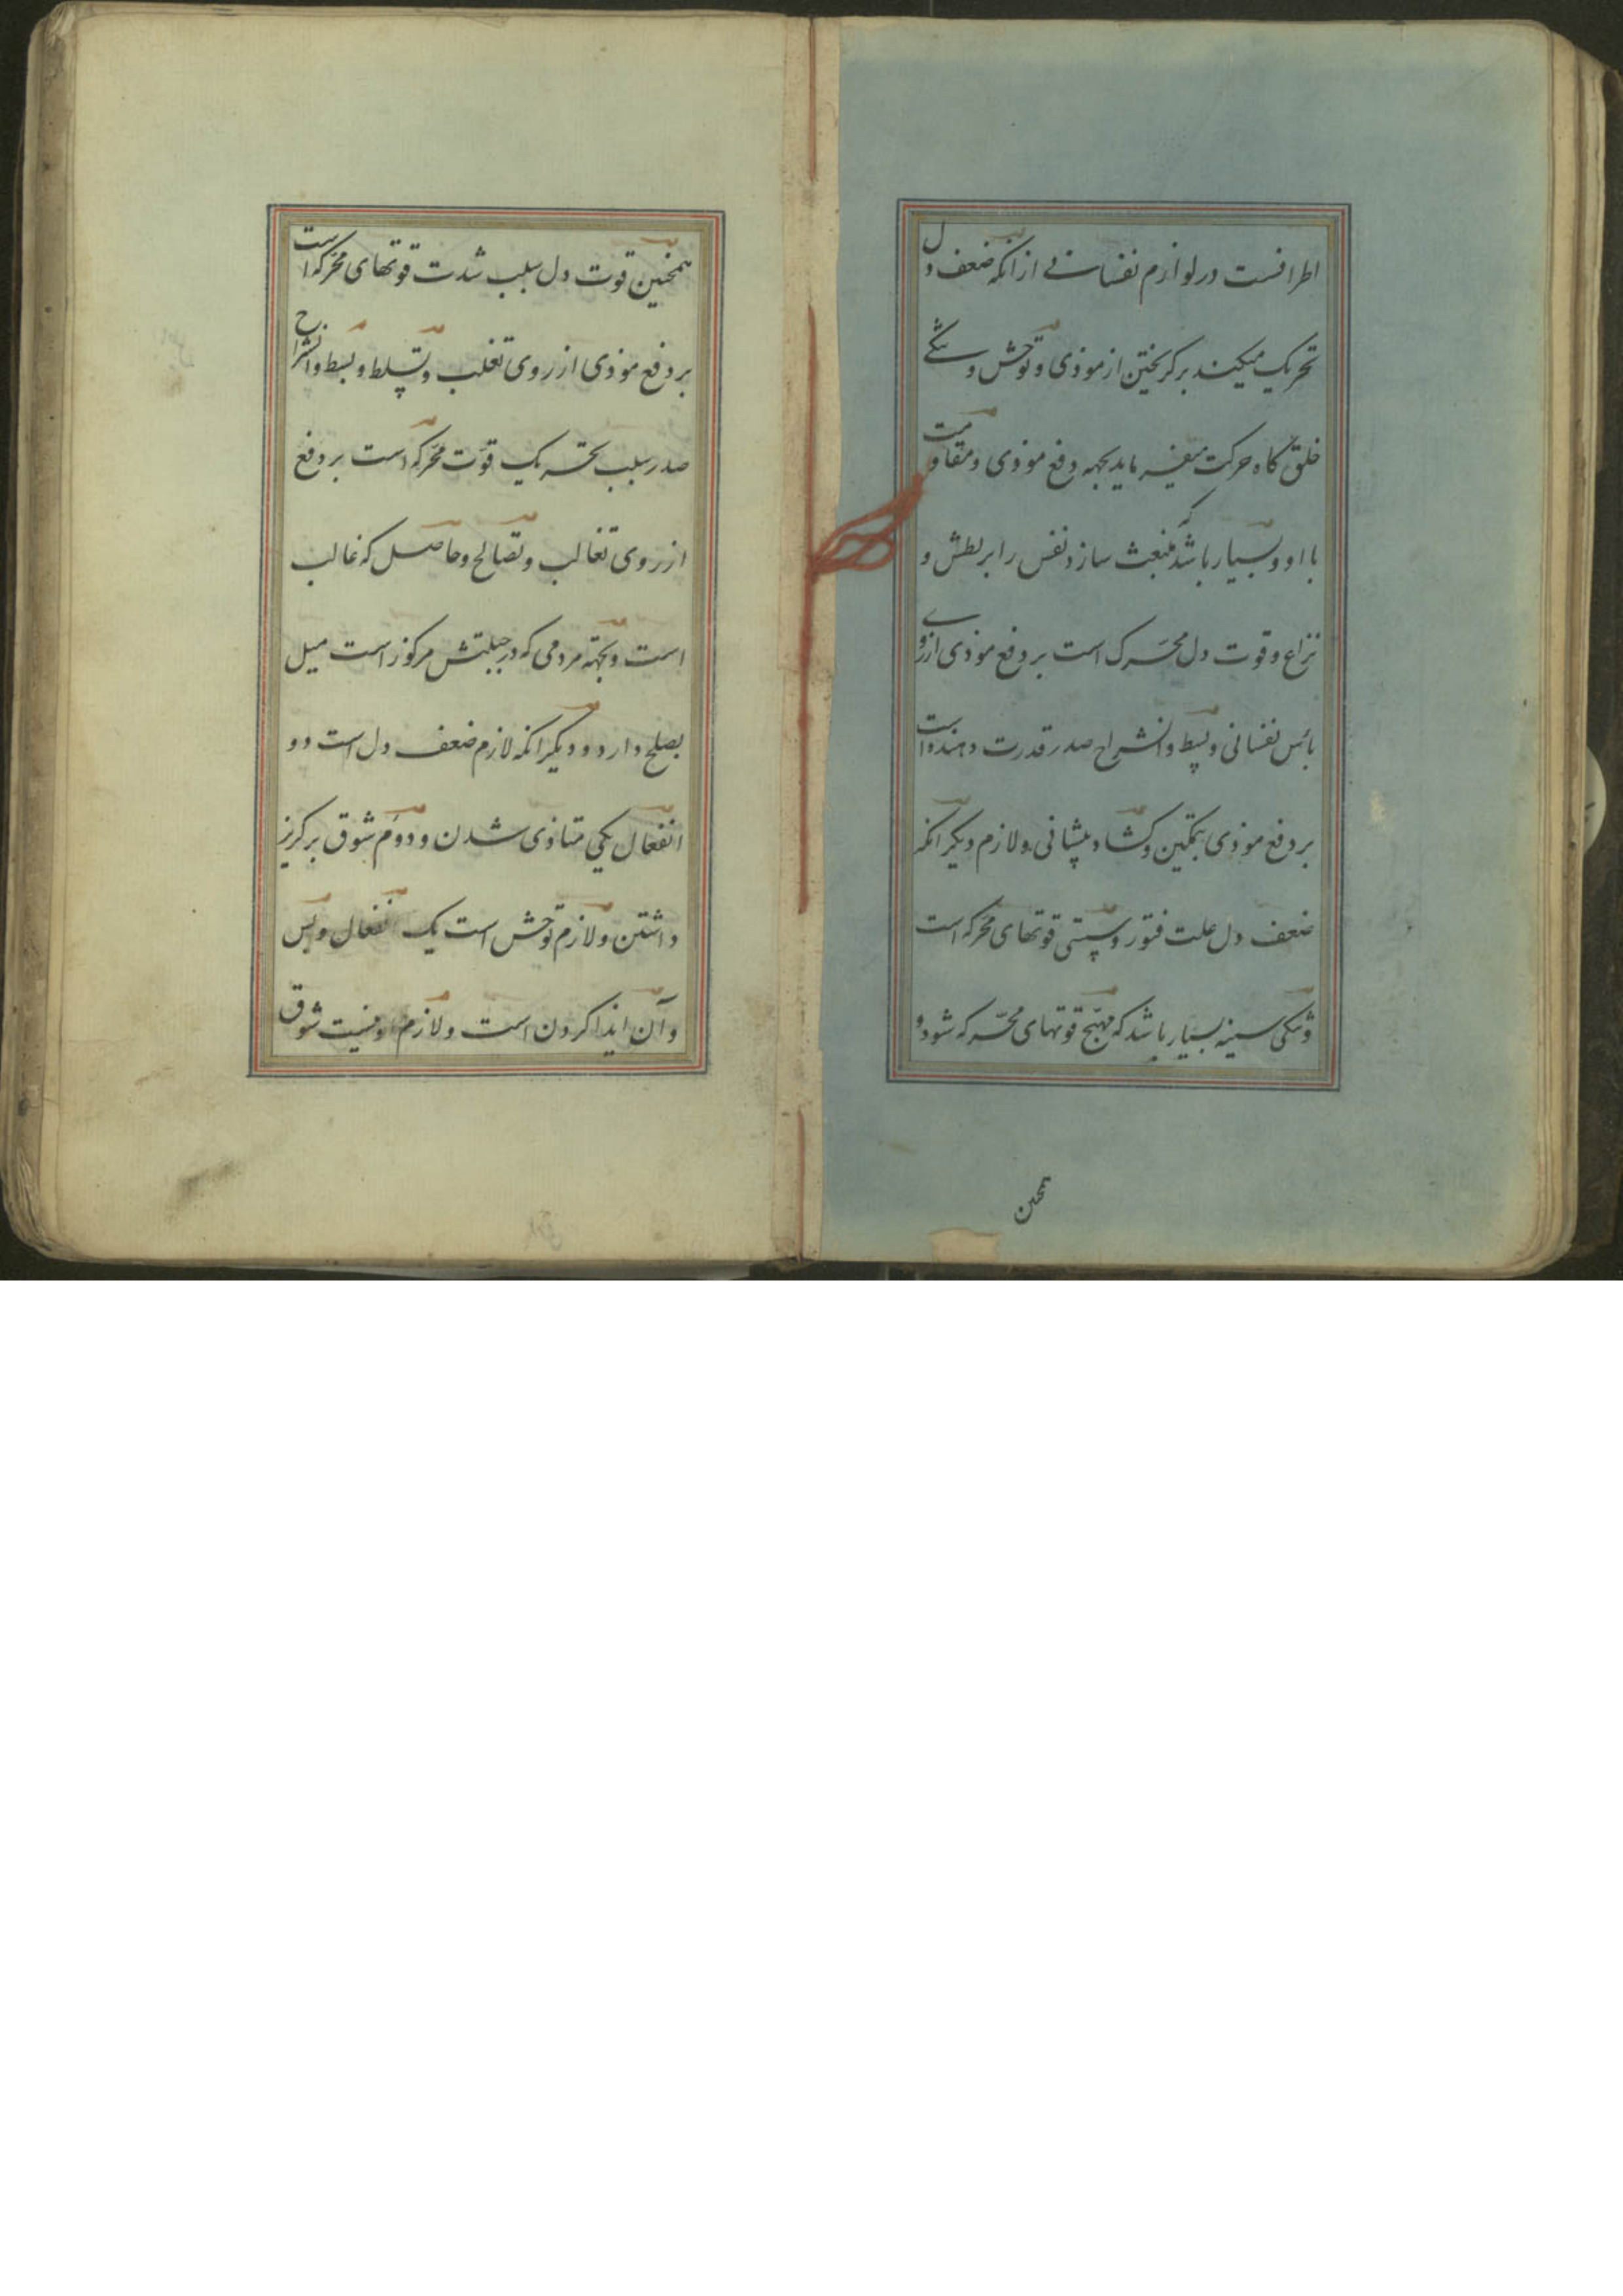 اطرافست در لوازم نفسانی از انکه ضعف دل
تحریک میکند بر کریختن از موذی و توحش و تنگی
خلق کاه حرکت میفرماید بجهه دفع موذی و مقاومت
با او و بسیار باشد که منبعث سازد نفس را بر بطش و
نزاع و قوت دل محرک است بر دفع موذی از روی
بائس نفسانی و بسط و انشراح صدر قدرت دهنده است
بر دفع موذی بتمکین و کشاد پیشانی و لازم دیکر انکه
ضعف دل علت فتور و سستی قوتهای محرکه است
و تنکی سینه بسیار باشد که مهیّج قوتهای محرّکه شود و
همچنین
همچنین قوت دل سبب شدت قوتهای محرکه است
بر دفع موذی از روی تغلب و تسلط و بسط و انشراح
صدر سبب تحریک قوّت محرّکه است بر دفع
از روی تغالب و تصالح و حاصل که غالب
است و بجهته مردمی که در جبلتش مرکوز است میل
بصلح دارد و دیکر انکه لازم ضعف دل است دو
انفعال یکی متاذی شدن و دوّم شوق بر کریز
داشتن و لازم توحش است یک انفعال و بس
و آن ایذا کردن است و لازم او نیست شوق